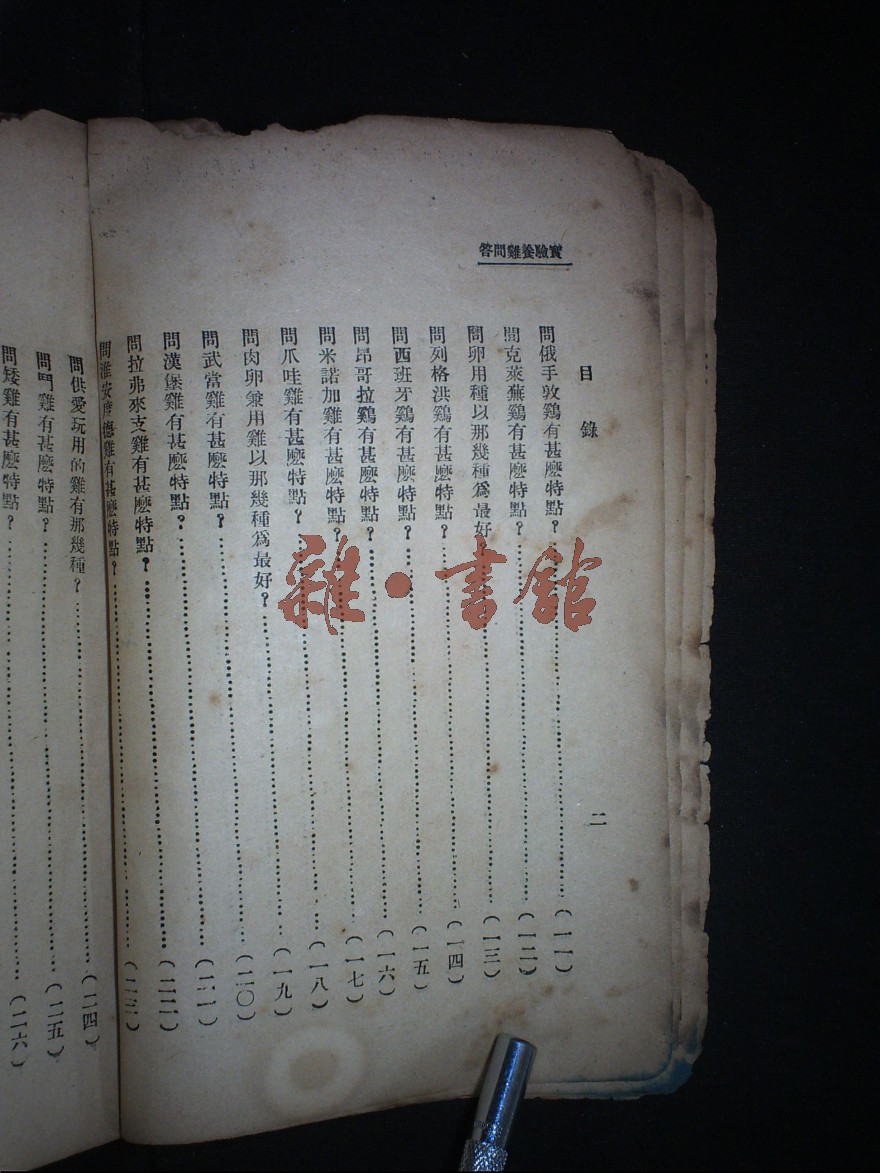 實驗養雞問答
目錄
二
問俄手敦鷄有甚麼特點？……(一一)
問克萊蕪鷄有甚麼特點？……(一二)
問卵用種以那幾種爲最好？……(一三)
問列格洪鷄有甚麼特點？……(一四)
問西班牙鷄有甚麼特點？……(一五)
問昂哥拉鷄有甚麼特點？……(一六)
問米諾加雞有甚麼特點？……(一七)
問爪哇雞有甚麼特點？……(一八)
問肉卵兼用雞以那幾種爲最好？……(一九)
問武當雞有甚麼特點？……(二〇)
問漢堡雞有甚麼特點？……(二一)
問拉弗來支雞有甚麼特點？……(二二)
問淮安摩德雞有甚麼特點？……(二三)
問供愛玩用的雞有那幾種？……(二四)
問鬥雞有甚麼特點？……(二五)
問矮雞有甚麼特點？……(二六)
雜·書館